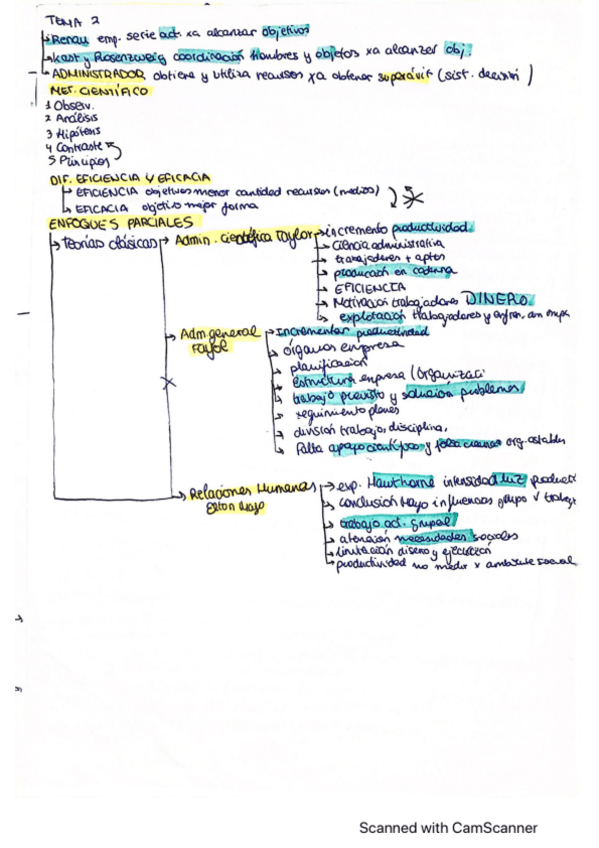 TEMA 2
Renau emp. serie act. xa alcanzar objetivos
Kast y Rosenzweig coordinación hombres y objetos xa alcanzar obj.
ADMINISTRADOR obtiene y utiliza recursos xa obtener superávit (sist. decisión)
MET. CIENTÍFICO
1 Observ.
2 Análisis
3 Hipótesis
4 Contraste
5 Principios
DIF. EFICIENCIA Y EFICACIA
EFICIENCIA objetivos menor cantidad recursos (medios)
EFICACIA objetivo mejor forma
ENFOQUES PARCIALES
teorías clásicas
Admin. Científica Taylor
incremento productividad.
Ciencia administrativa
trabajadores + aptos
producción en cadena
EFICIENCIA
Motivación trabajadores DINERO.
explotación trabajadores y enfren. con
Adm general Fayol
Incrementar productividad
órganos empresa
planificación
estructura empresa (organizaci
trabajo previsto y solución problemas
seguimiento planes
división trabajo, disciplina,
Falta apoyo científico y org. estables
Relaciones Humanas
Elton Mayo
exp. Hawthorne intensidad luz producti
conclusión Mayo influencias grupo trabaj
trabajo act. grupal
atención necesidades sociales
limitación diseño y ejecución
productividad no medir x ambiente social
Scanned with CamScanner